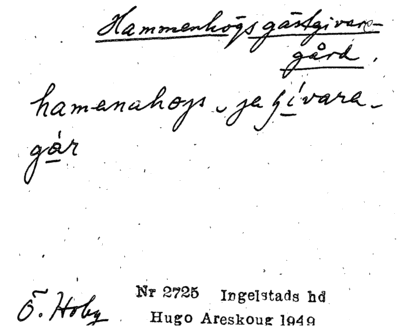 Hammenhögs gästgivare-
gård.
hamenahogs, ja hivara-
gár
Ö. Hoby
Nr 2725 Ingelstads hd
Hugo Areskoug 1949